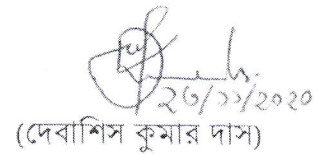 ২৩/১১/২০২০
(দেবাশিস কুমার দাস)